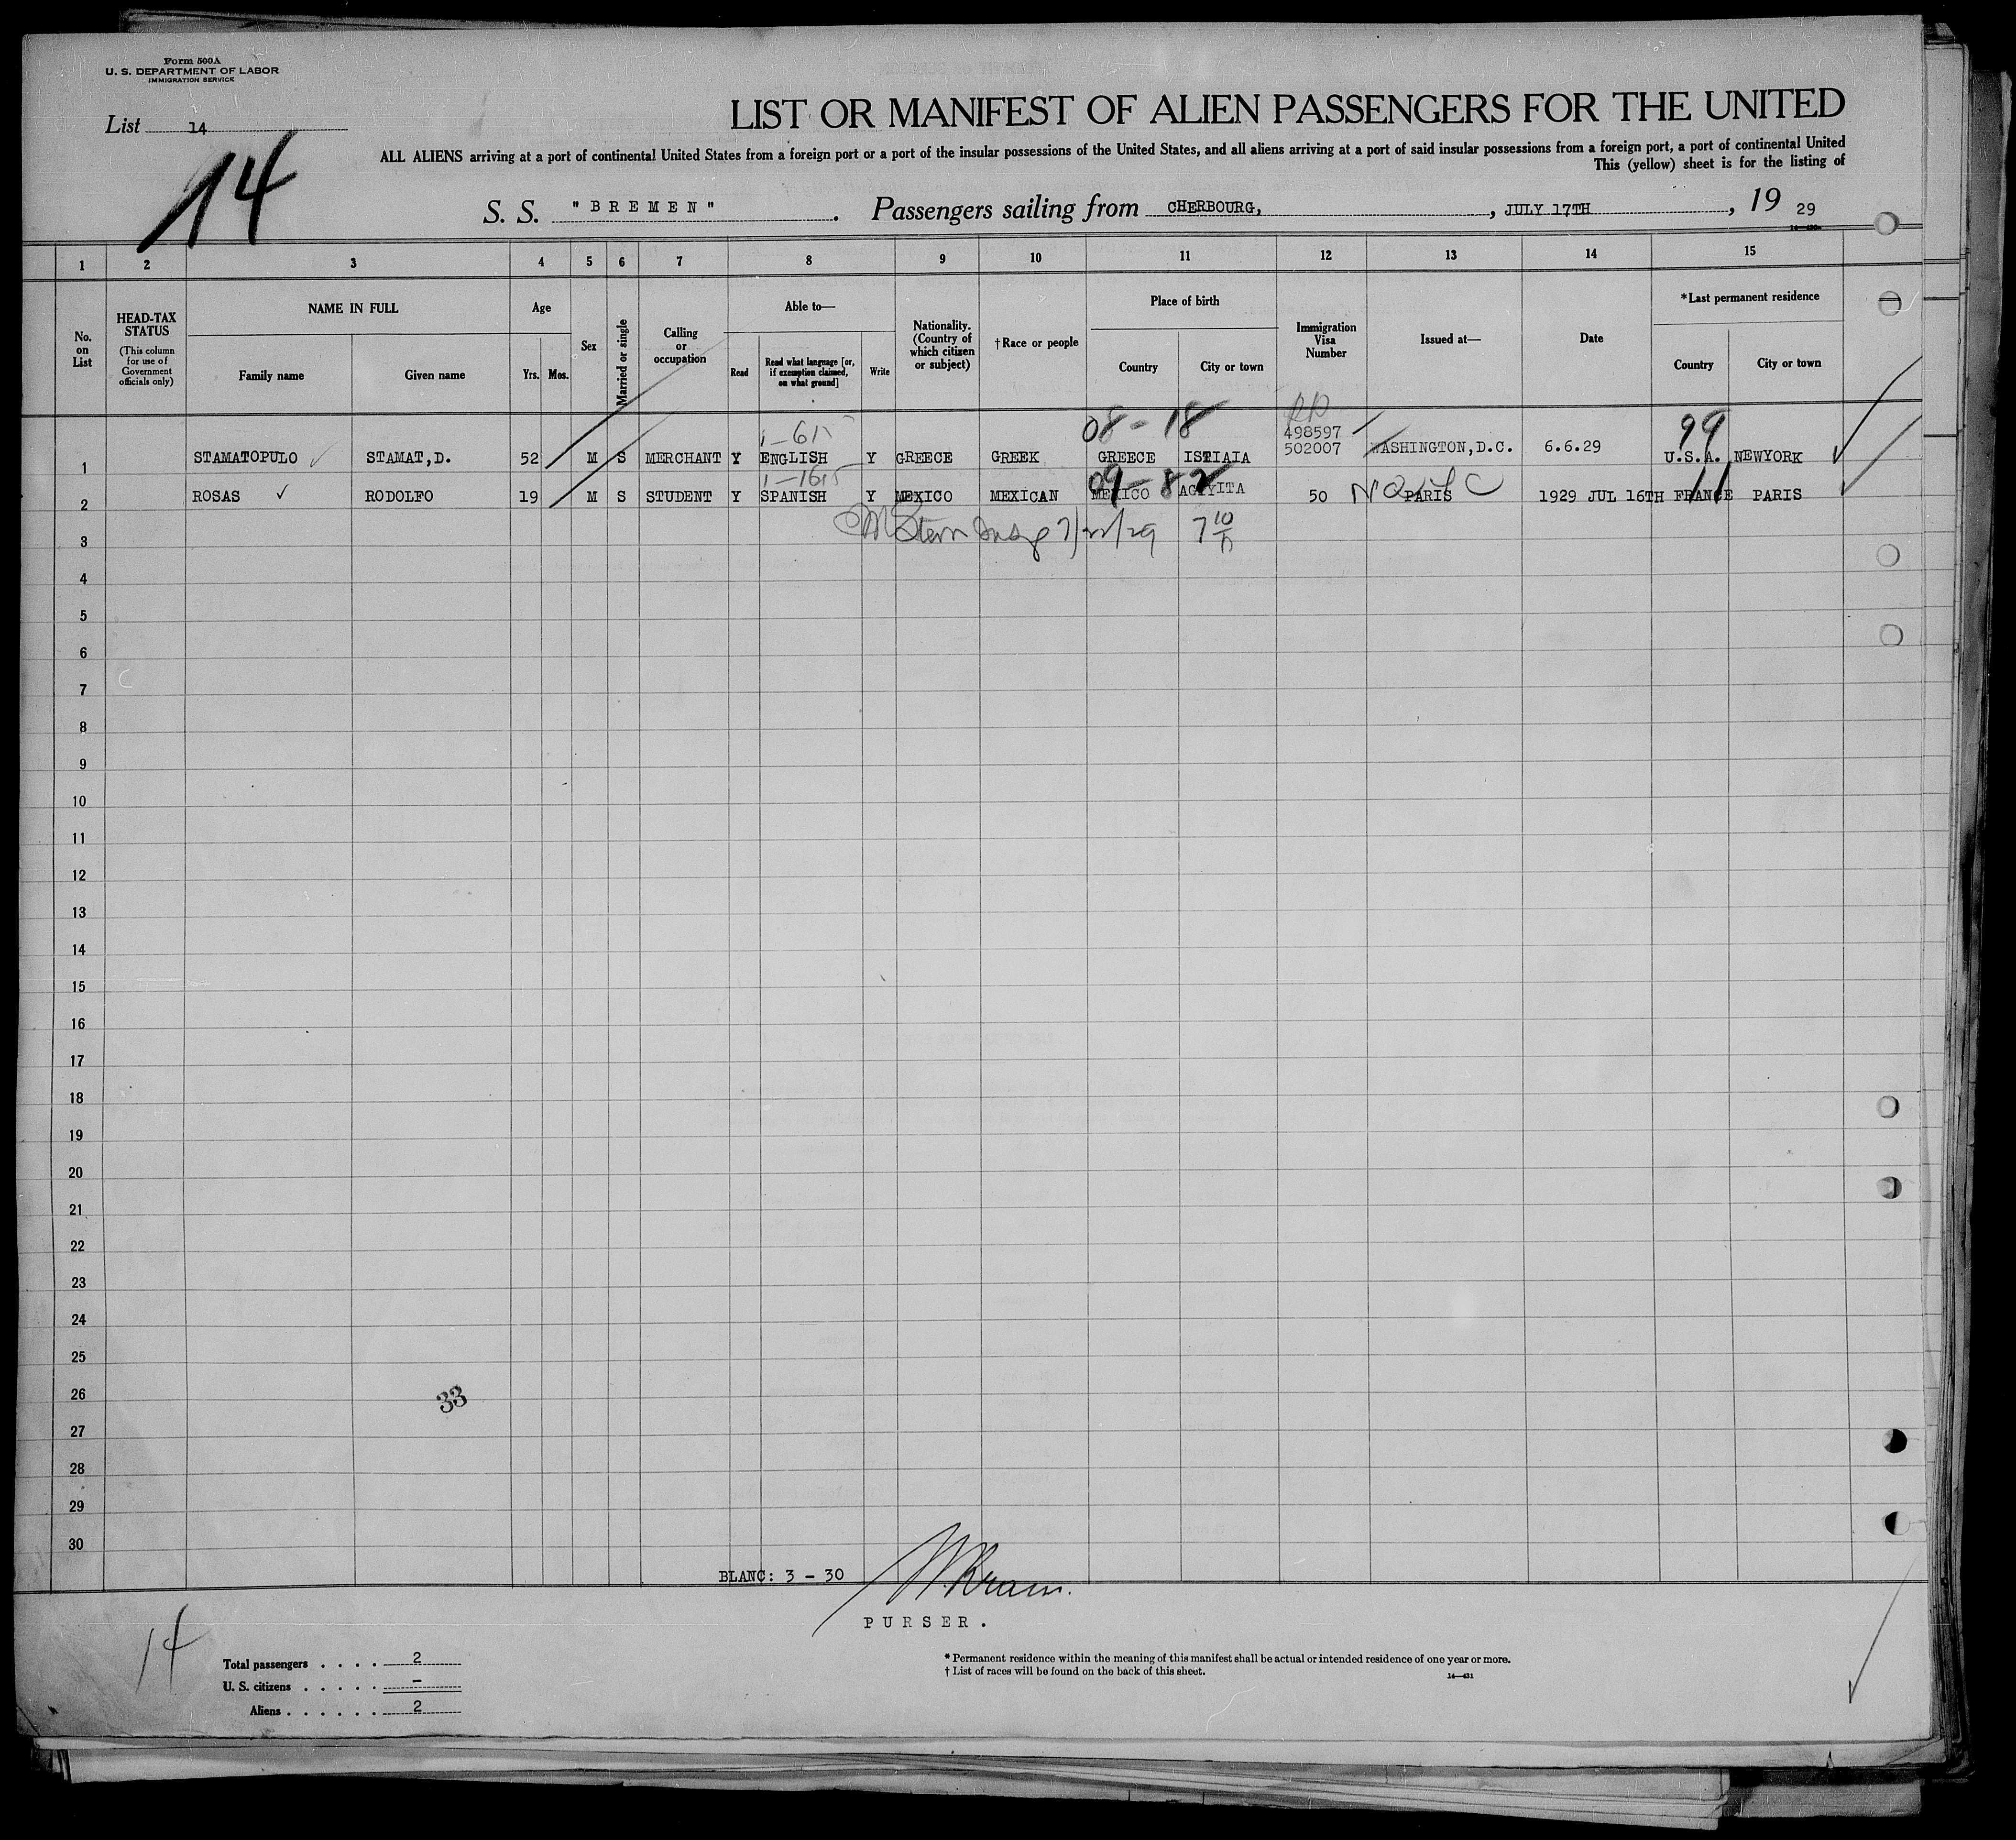 Form 500A
U. S. DEPARTMENT OF LABOR
IMMIGRATION SERVICE
List 14
14
LIST OR MANIFEST OF ALIEN PASSENGERS FOR THE UNITED
ALL ALIENS arriving at a port of continental United States from a foreign port or a port of the insular possessions of the United States, and all aliens arriving at a port of said insular possessions from a foreign port, a port of continental United
This (yellow) sheet is for the listing of
S. S. "BREMEN". Passengers sailing from CHERBOURG, , JULY 17TH , 19 29
1 2 3 4 5 6 7 8 9 10 11 12 13 14 15
No. on List
HEAD-TAX STATUS
(This column for use of Government officials only)
NAME IN FULL
Family name
Given name
Age
Yrs. Mos.
Sex
Married or single
Calling or occupation
Able to—
Read
Read what language [or, if exemption claimed, on what ground]
Write
Nationality. (Country of which citizen or subject)
†Race or people
Place of birth
Country
City or town
Immigration Visa Number
Issued at—
Date
*Last permanent residence
Country
City or town
08 - 18
498597
99
1 STAMATOPULO STAMAT,D. 52 M S MERCHANT Y ENGLISH Y GREECE GREEK GREECE ISTIAIA 502007 WASHINGTON,D.C. 6.6.29 U.S.A. NEWYORK
09 - 82
11
2 ROSAS RODOLFO 19 M S STUDENT Y SPANISH Y MEXICO MEXICAN MEXICO 50 PARIS 1929 JUL 16TH FRANCE PARIS
3
4
5
6
7
8
9
10
11
12
13
14
15
16
17
18
19
20
21
22
23
24
25
26
33
27
28
29
30
BLANC: 3 - 30
PURSER.
14
Total passengers . . . . 2
U. S. citizens . . . . . -
Aliens . . . . . . 2
* Permanent residence within the meaning of this manifest shall be actual or intended residence of one year or more.
† List of races will be found on the back of this sheet.
14—431